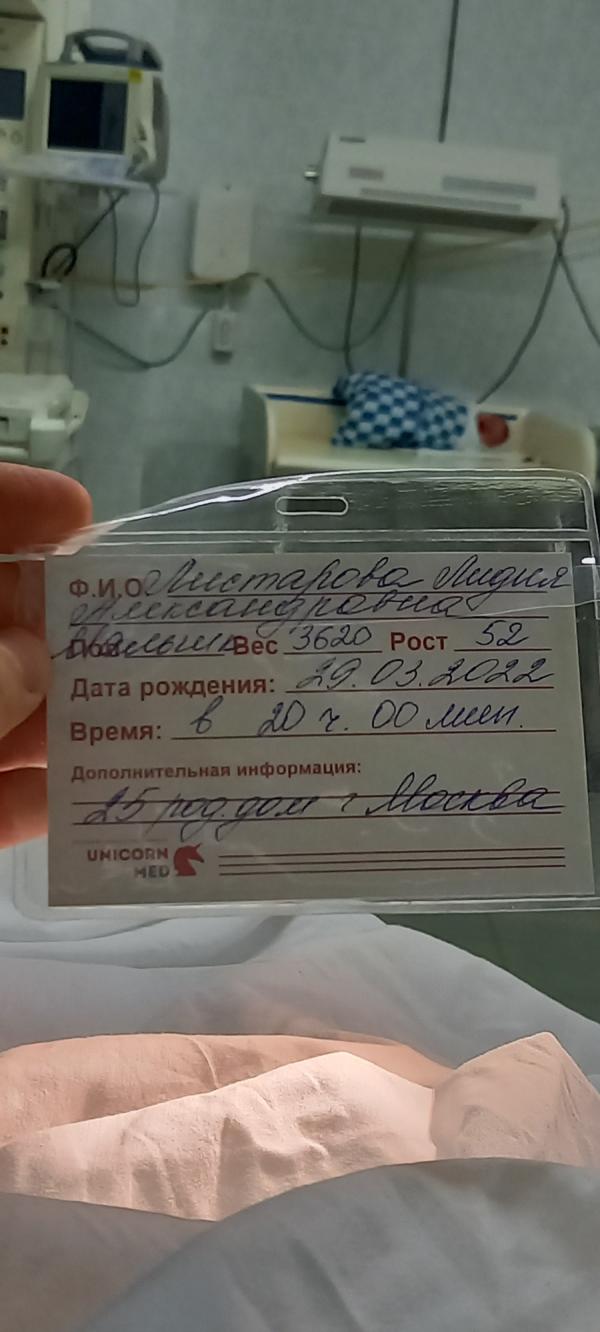 Ф.И.О Листарова Лидия
Александровна
Пол Малыш Вес 3620 Рост 52
Дата рождения: 29.03.2022
Время: в 20 ч. 00 мин.
Дополнительная информация:
25 род.дом г Москва
UNICORN
MED